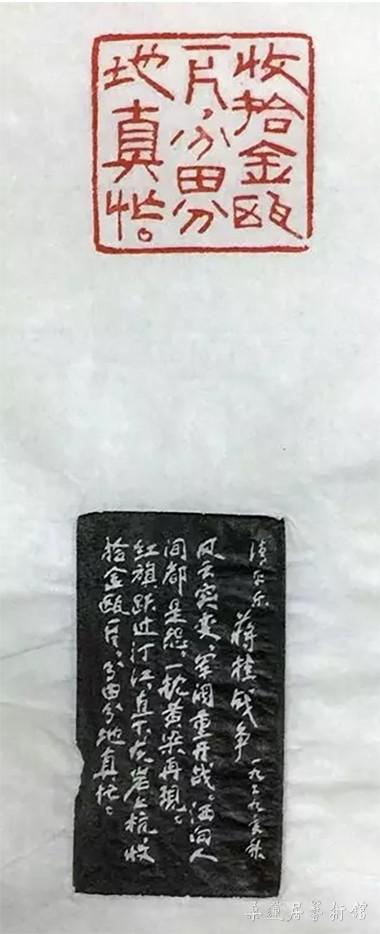 收拾金瓯
一片，分田分
地真忙。
清平乐 蒋桂战争 一九二九年秋
风云突变，军阀重开战。洒向人
间都是怨，一枕黄粱再现。
红旗跃过汀江，直下龙岩上杭。收
拾金瓯一片，分田分地真忙。
蓮居藝術館